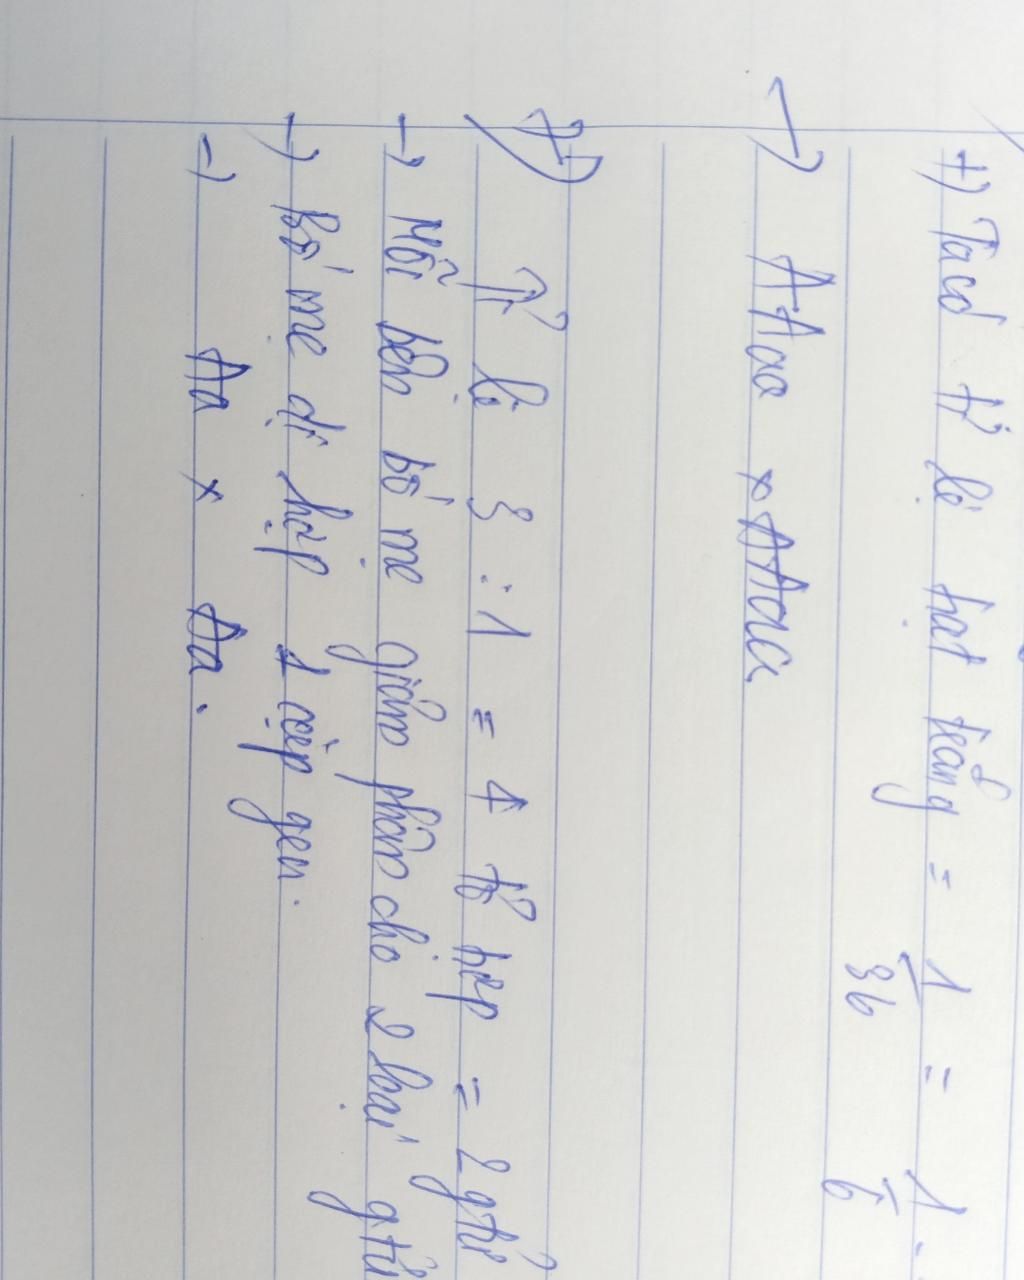 +) Ta có tỉ lệ hạt trắng = 1/36 = 1/6 .
→ AAaa x AAaa
Tỉ lệ 3 : 1 = 4 tổ hợp = 2 gtử
→ Mỗi bên bố mẹ giảm phân cho 2 loại gtử
→ Bố mẹ dị hợp 1 cặp gen.
=) Aa x Aa.